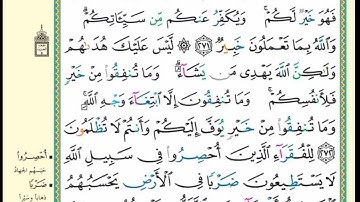 فَهُوَ خَيْرٌ لَّكُمْ ۚ وَيُكَفِّرُ عَنكُم مِّن سَيِّئَاتِكُمْ ۗ
وَاللَّهُ بِمَا تَعْمَلُونَ خَبِيرٌ ٢٧١ ۞ لَّيْسَ عَلَيْكَ هُدَىٰهُمْ
وَلَـٰكِنَّ اللَّهَ يَهْدِى مَن يَشَآءُ ۗ وَمَا تُنفِقُوا۟ مِنْ خَيْرٍ
فَلِأَنفُسِكُمْ ۚ وَمَا تُنفِقُونَ إِلَّا ابْتِغَآءَ وَجْهِ اللَّهِ ۚ
وَمَا تُنفِقُوا۟ مِنْ خَيْرٍ يُوَفَّ إِلَيْكُمْ وَأَنتُمْ لَا تُظْلَمُونَ
٢٧٢ لِلْفُقَرَآءِ الَّذِينَ أُحْصِرُوا۟ فِى سَبِيلِ اللَّهِ
لَا يَسْتَطِيعُونَ ضَرْبًا فِى الْأَرْضِ يَحْسَبُهُمُ
أُحْصِرُوا
حبسهم الجهاد
ضَرْبًا